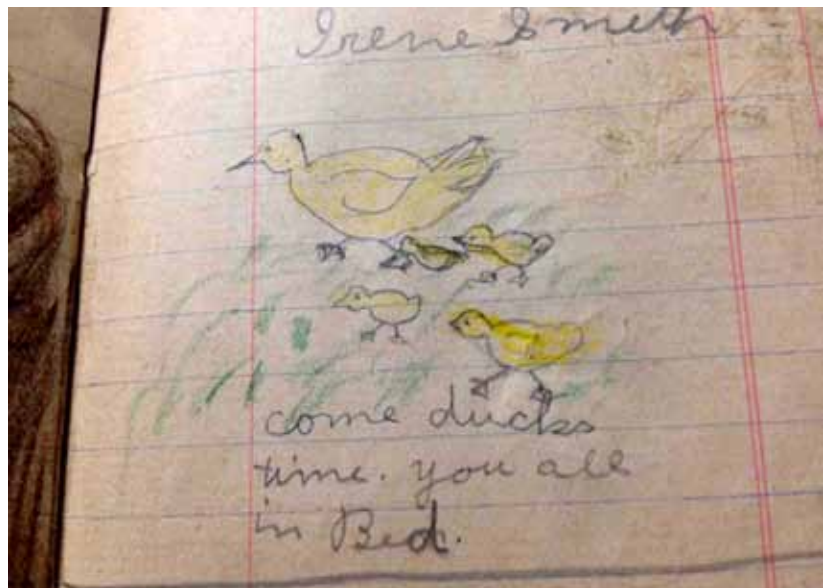 Irene Smith
come ducks
time. you all
in Bed.